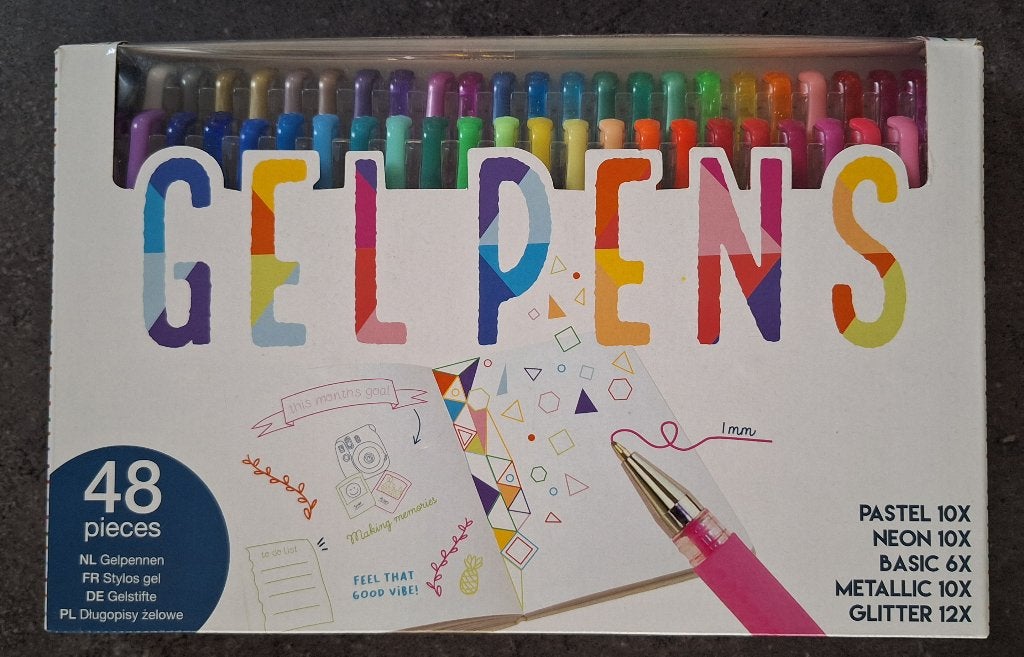 GEL PENS
this months goal
1mm
Making memories
to do list
FEEL THAT
GOOD ViBE!
48
pieces
NL Gelpennen
FR Stylos gel
DE Gelstifte
PL Długopisy żelowe
PASTEL 10X
NEON 10X
BASIC 6X
METALLIC 10X
GLITTER 12X